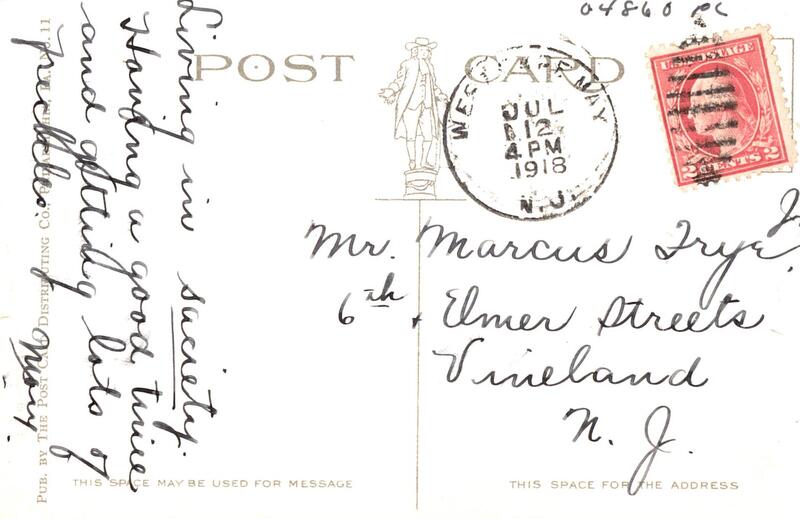 04860 PC
POST CARD
U.S. POSTAGE
2 CENTS 2
WEST CAPE MAY
JUL
12
4 PM
1918
N.J.
Living in society.
Having a good time
and getting lots of
freckles.
Mr. Marcus Frye Jr.
6th & Elmer Streets
Vineland
N. J.
PUB. BY THE POST CARD DISTRIBUTING CO., PA. NO. 11
THIS SPACE MAY BE USED FOR MESSAGE
THIS SPACE FOR THE ADDRESS